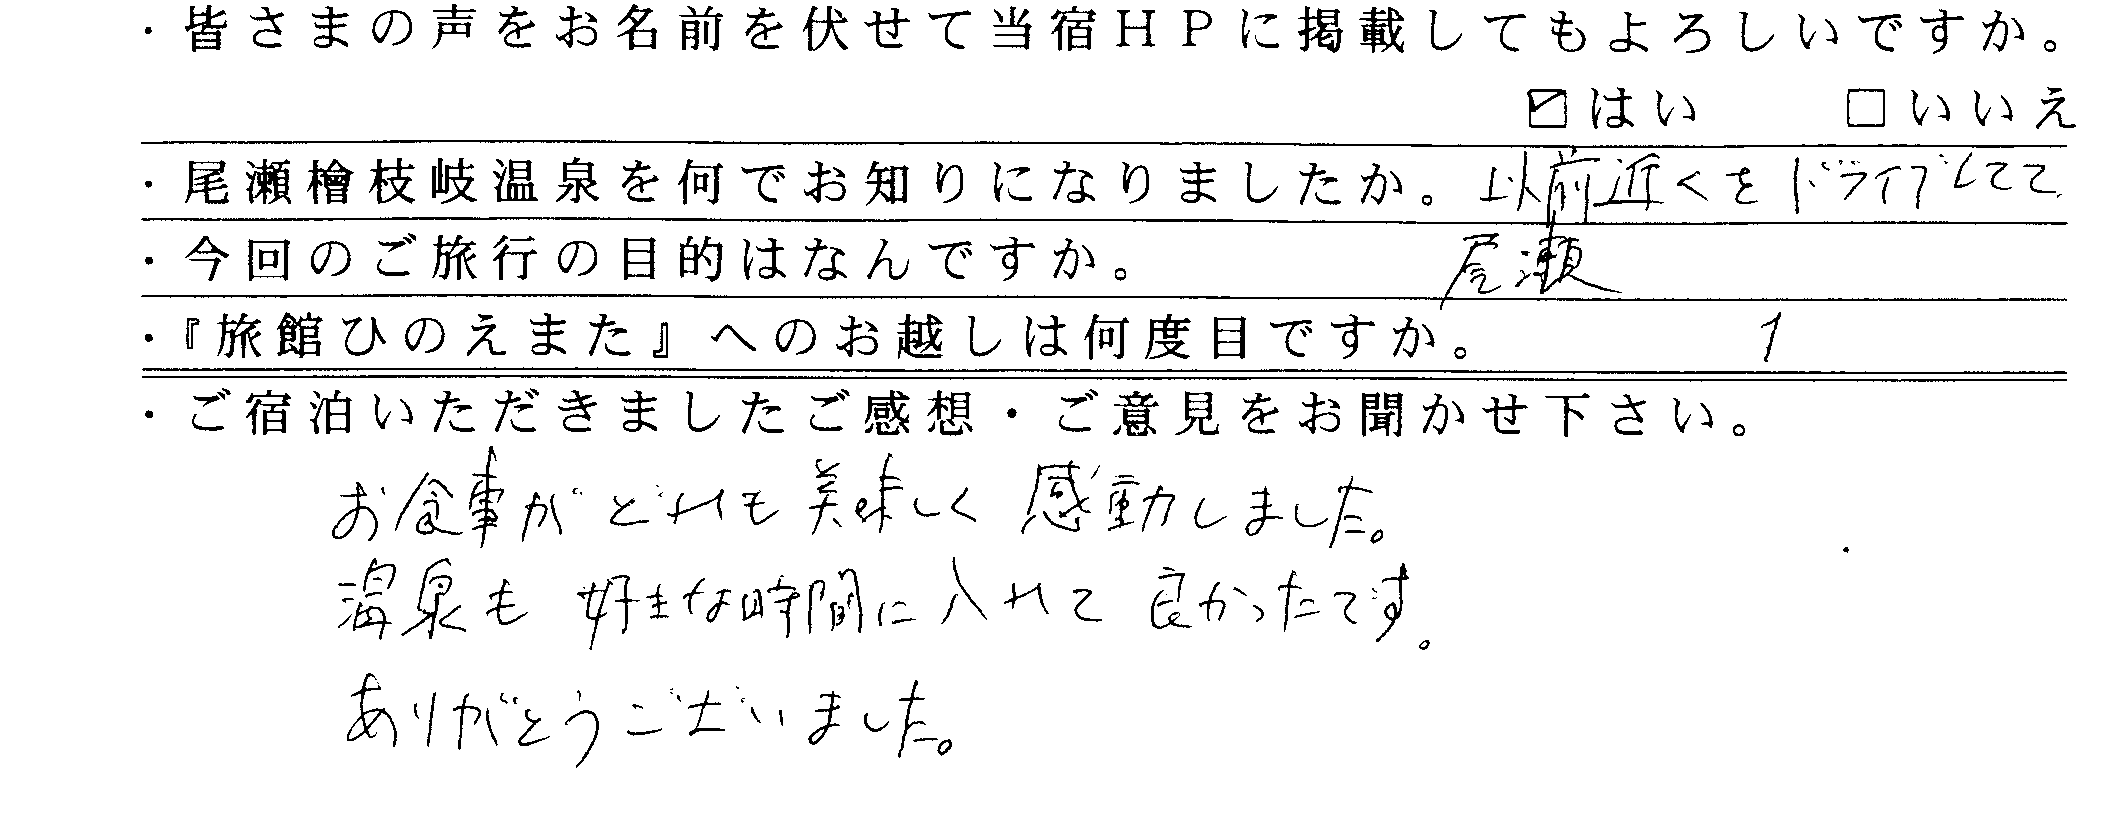 ・皆さまの声をお名前を伏せて当宿ＨＰに掲載してもよろしいですか。
☑はい　□いいえ
・尾瀬檜枝岐温泉を何でお知りになりましたか。以前近くをドライブしてて
・今回のご旅行の目的はなんですか。尾瀬
・『旅館ひのえまた』へのお越しは何度目ですか。1
・ご宿泊いただきましたご感想・ご意見をお聞かせ下さい。
お食事がどれも美味しく感動しました。
温泉も好きな時間に入れて良かったです。
ありがとうございました。